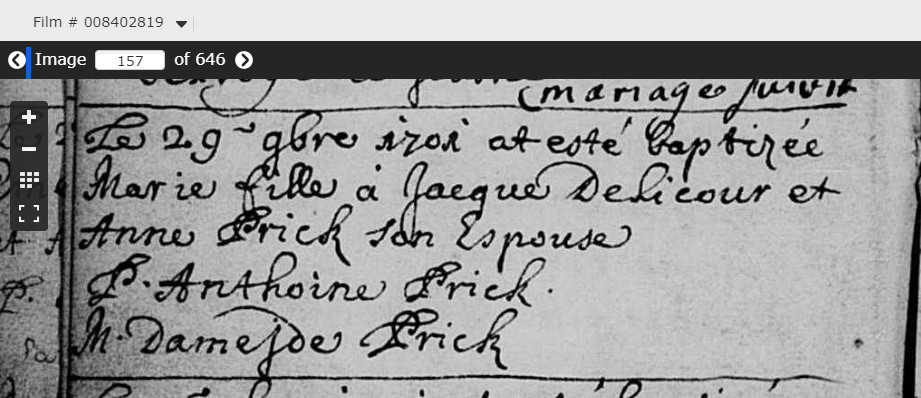 Film # 008402819
Image 157 of 646
(mariage suivit
Le 29 gbre 1701 at esté baptizée
Marie fille a Jacque Delicour et
Anne Prick son Espouse
P. Anthoine Prick.
M. Damejde Prick